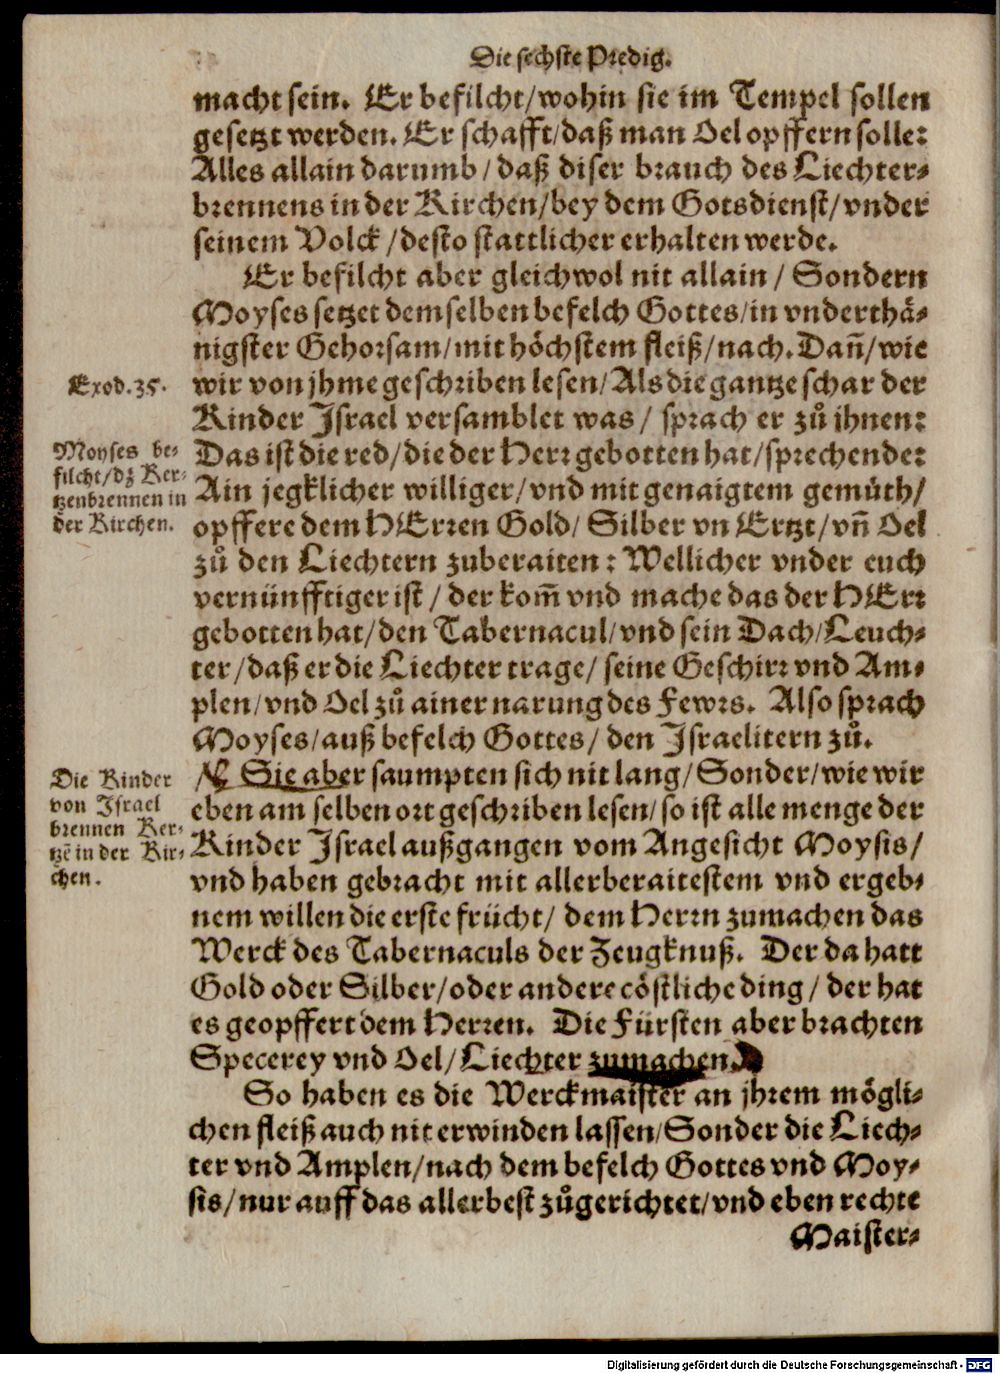 Die sechste Predig.
macht sein. Er befilcht/wohin sie im Tempel sollen
gesetzt werden. Er schafft/daß man Oel opffern solle:
Alles allain darumb/daß diser brauch des Liechter-
brennens in der Kirchen/bey dem Gotsdienst/vnder
seinem Volck/desto stattlicher erhalten werde.
Er befilcht aber gleichwol nit allain/Sondern
Moyses setzet demselben befelch Gottes/in vnderthä-
nigster Gehorsam/mit höchstem fleiß/nach. Dañ/wie
Exod.35.
wir von jhme geschriben lesen/Als die gantze schar der
Kinder Israel versamblet was/ sprach er zů ihnen:
Moyses be-
filcht/dz Ker-
tzenbrennen in
der Kirchen.
Das ist die red/die der Herr gebotten hat/sprechende:
Ain jegklicher williger/vnd mit genaigtem gemüth/
opffere dem HErren Gold/Silber vn Ertzt/vñ Oel
zů den Liechtern zuberaiten: Wellicher vnder euch
vernünfftiger ist/der kom̃ vnd mache das der HErr
gebotten hat/den Tabernacul/vnd sein Dach/Leuch-
ter/daß er die Liechter trage/seine Geschirr vnd Am-
plen/vnd Oel zů ainer narung des Fewrs. Also sprach
Moyses/auß befelch Gottes/den Israelitern zů.
Die Kinder
von Israel
brennen Ker-
tzẽ in der Kir-
chen.
Sie aber saumpten sich nit lang/Sonder/wie wir
eben am selben ort geschriben lesen/so ist alle menge der
Kinder Israel außgangen vom Angesicht Moysis/
vnd haben gebracht mit allerberaitestem vnd ergeb-
nem willen die erste frücht/dem Herrn zumachen das
Werck des Tabernaculs der Zeugknuß. Der da hatt
Gold oder Silber/oder andere cöstliche ding/der hat
es geopffert dem Herren. Die Fürsten aber brachten
Specerey vnd Oel/Liechter zumachen.
So haben es die Werckmaister an jhrem mögli-
chen fleiß auch nit erwinden lassen/Sonder die Liech-
ter vnd Amplen/nach dem befelch Gottes vnd Moy-
sis/nur auff das allerbest zůgerichtet/vnd eben rechte
Maister-
Digitalisierung gefördert durch die Deutsche Forschungsgemeinschaft - DFG